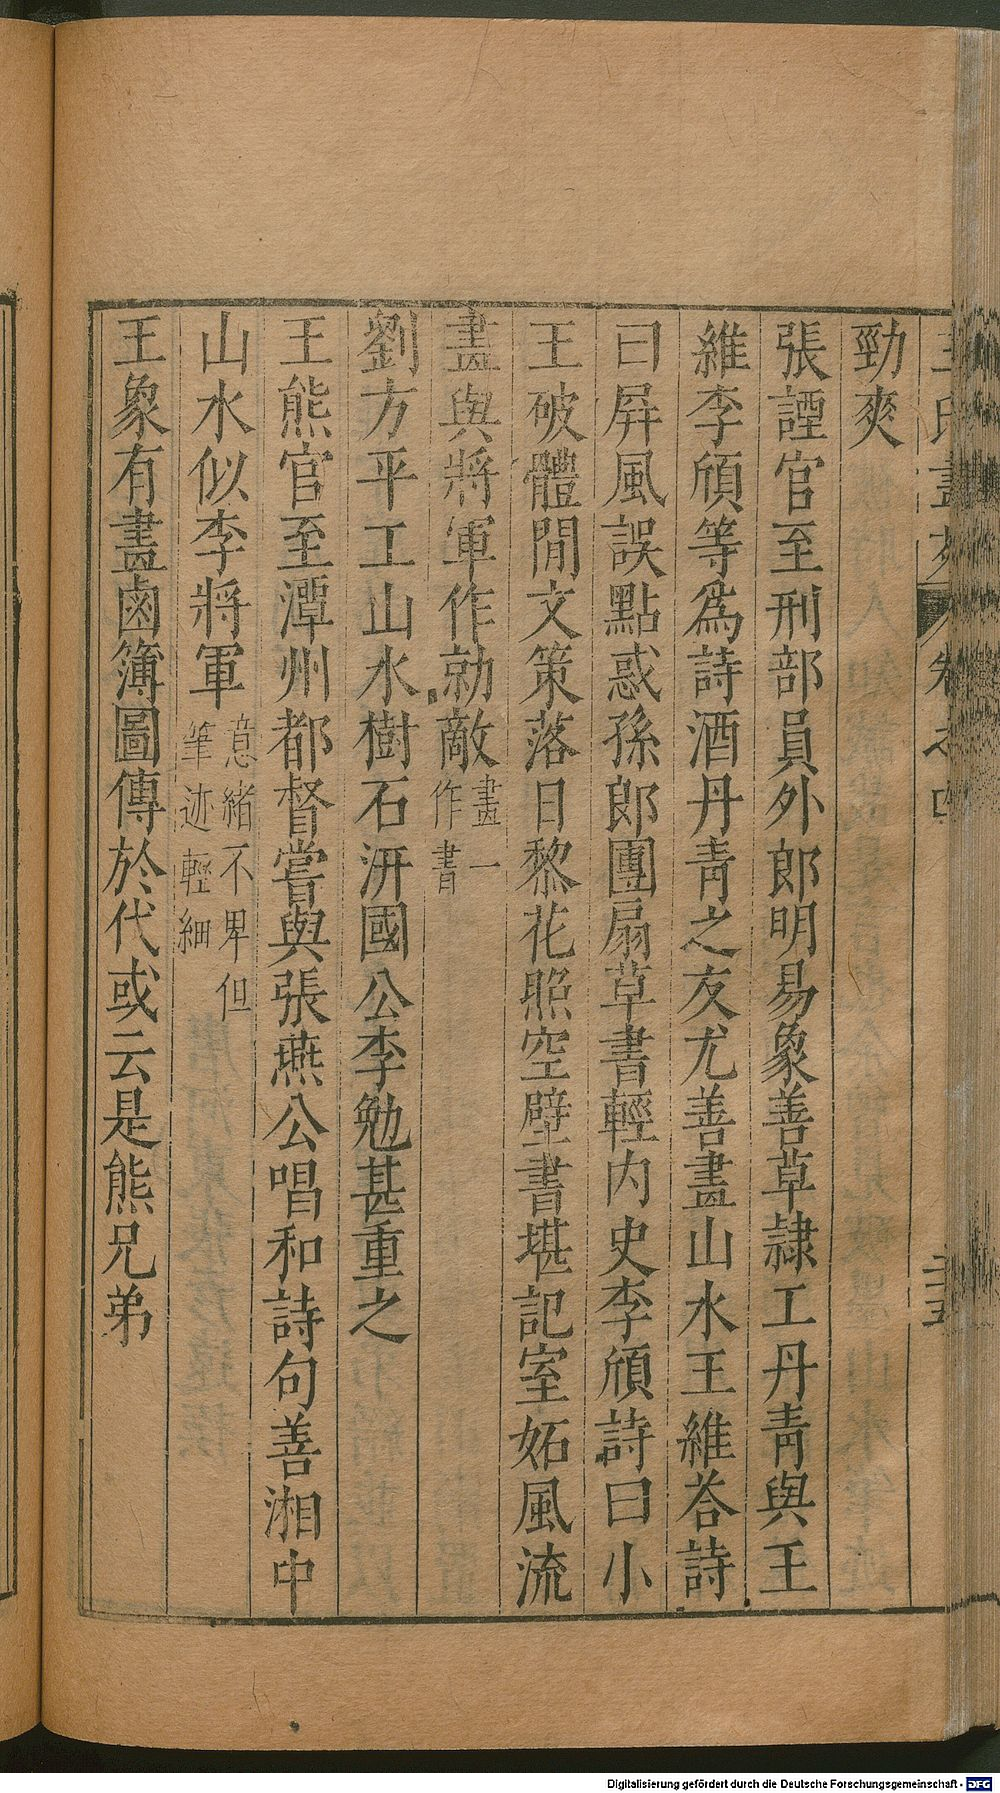 勁爽
張諲官至刑部員外郎明易象善草隷工丹靑與王
維李頎等爲詩酒丹靑之友尤善畫山水王維荅詩
曰屛風誤點惑孫郎團扇草書輕内史李頎詩曰小
王破體閒文策落日黎花照空壁書堪記室妬風流
畫與將軍作勍敵畫一
作書
劉方平工山水樹石汧國公李勉甚重之
王熊官至潭州都督嘗與張燕公唱和詩句善湘中
山水似李將軍意緒不卑但
筆迹輕細
王象有畫鹵簿圖傳於代或云是熊兄弟
Digitalisierung gefördert durch die Deutsche Forschungsgemeinschaft - DFG